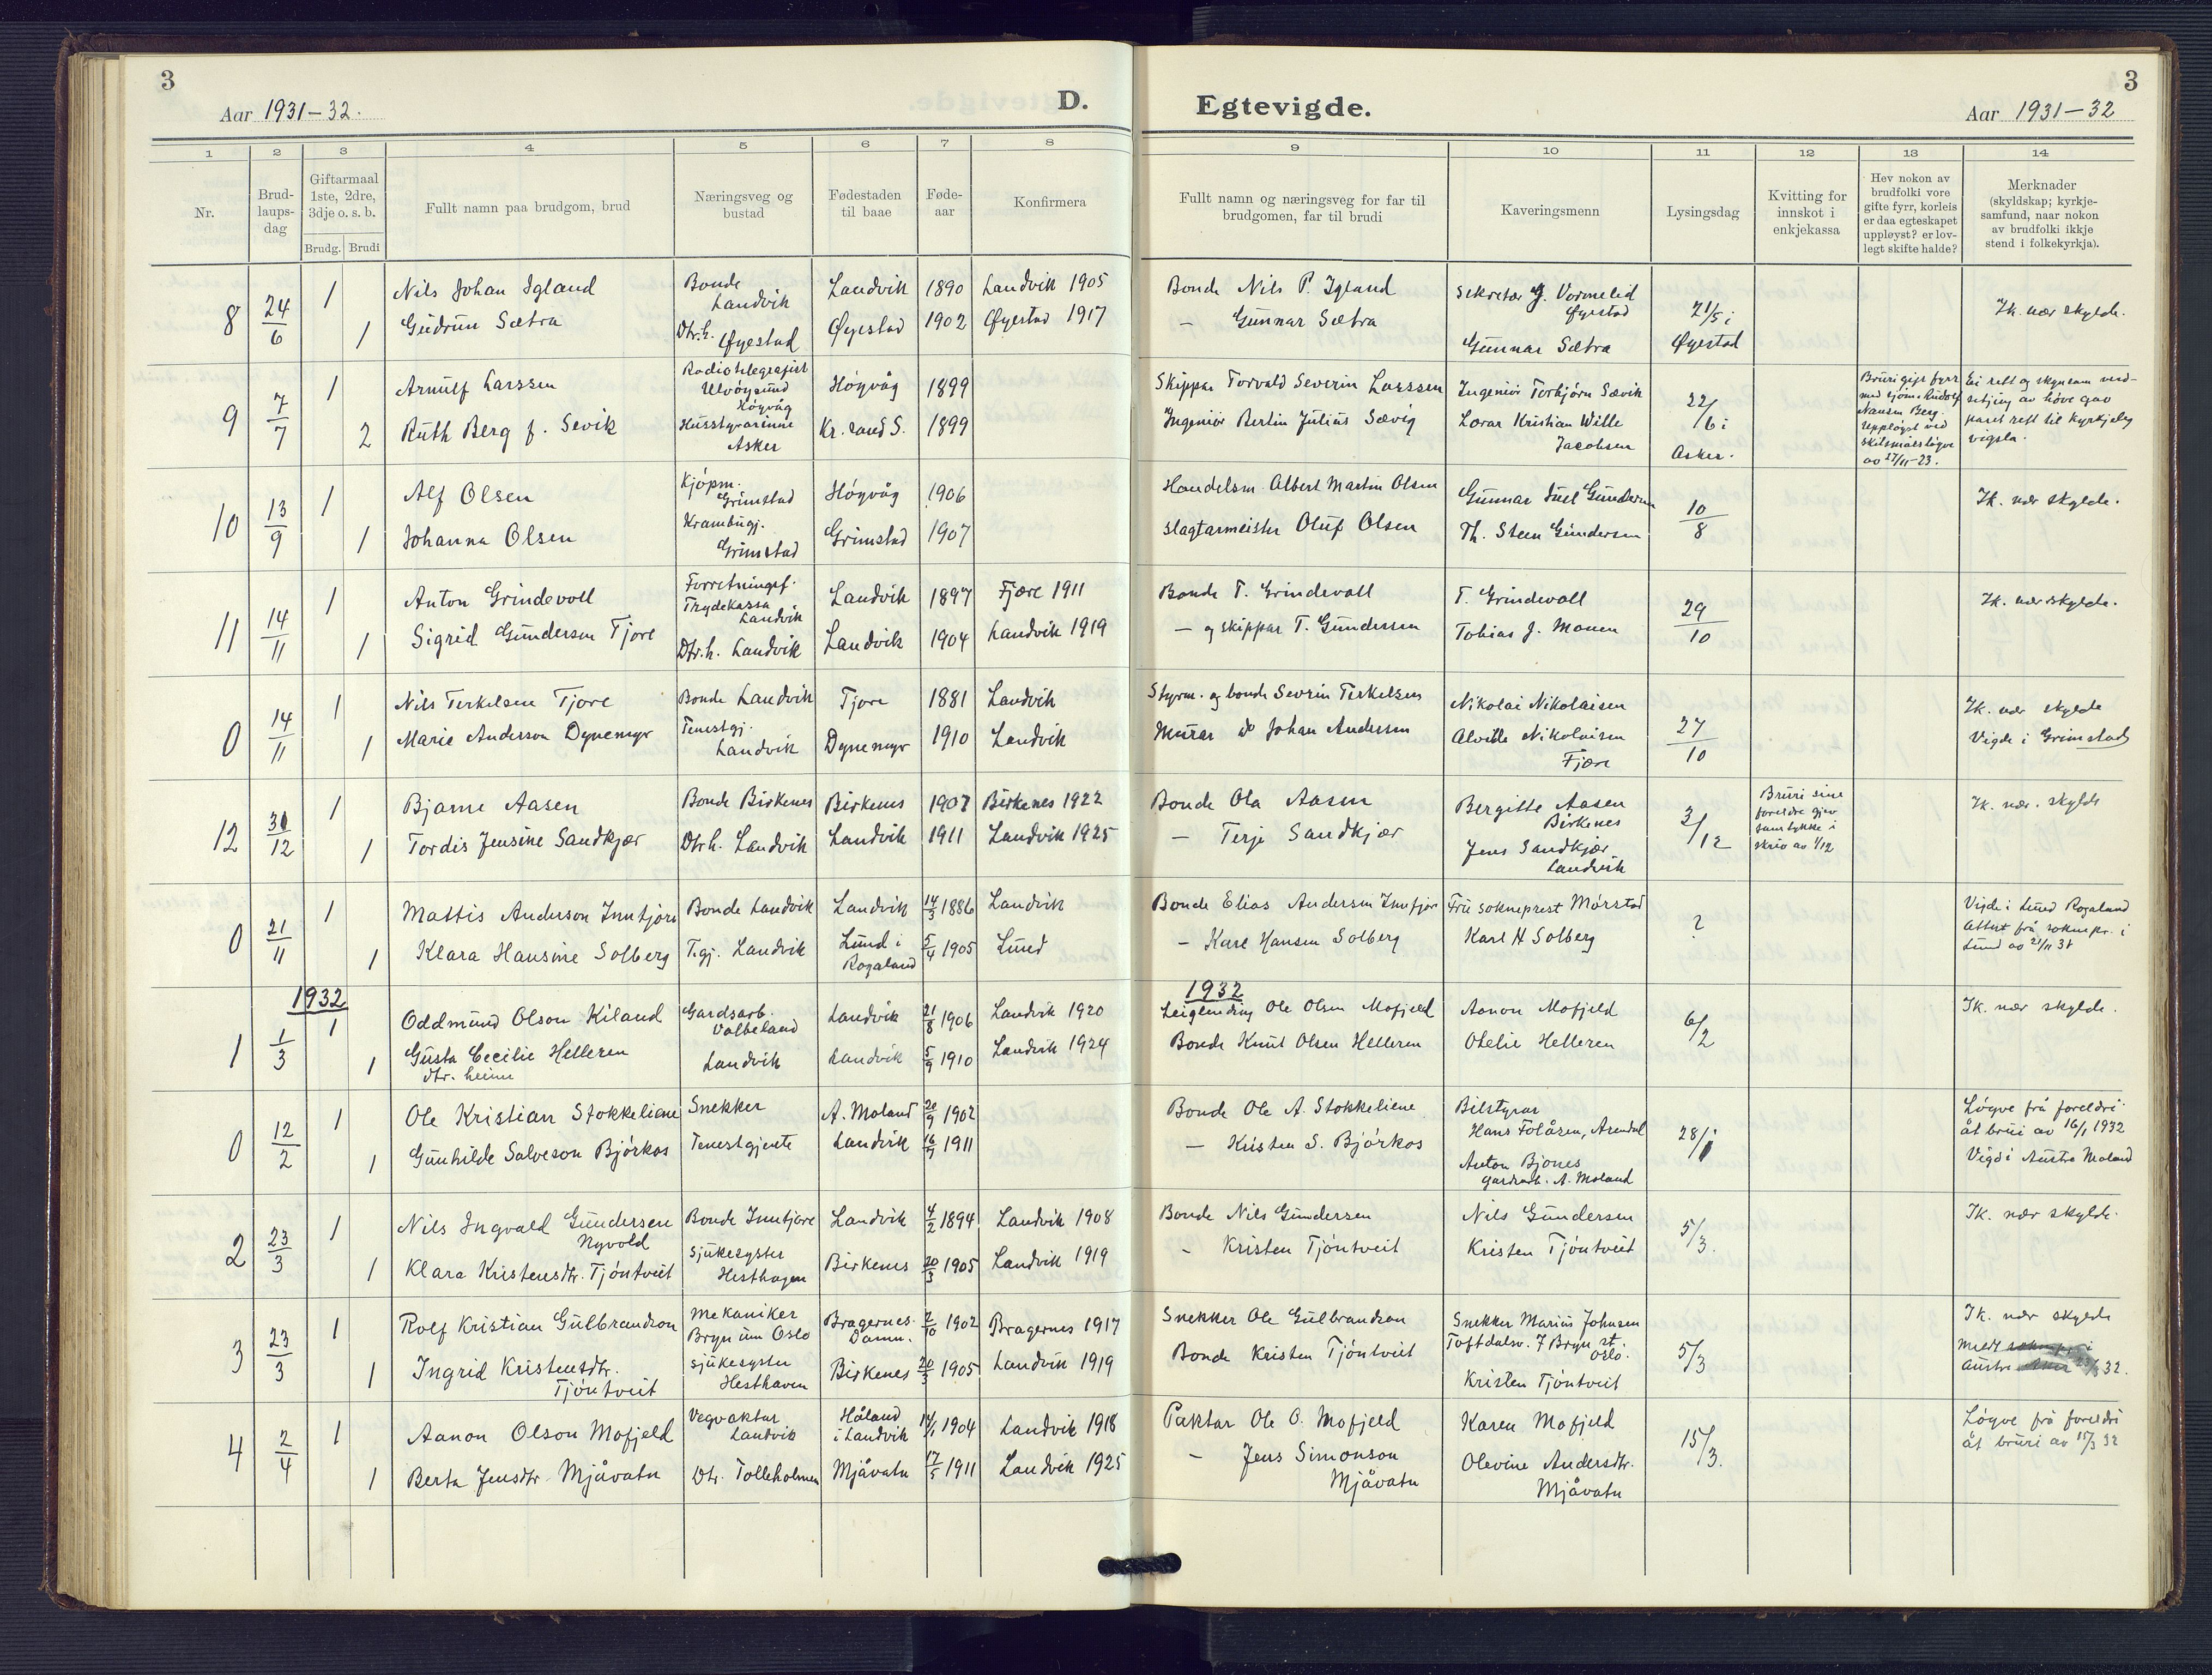 3
Aar 1931-32.
D.
1 2 3 4 5 6 7 8
Nr.
Brud-
laups-
dag
Giftarmaal
1ste, 2dre,
3dje o. s. b.
Brudg. Brudi
Fullt namn paa brudgom, brud
Næringsveg og
bustad
Fødestaden
til baae
Føde-
aar
Konfirmera
8 24/6 1 Nils Johan Igland Bonde Landvik Landvik 1890 Landvik 1905
1 Gudrun Sætra Dtr.h. Øyestad Øyestad 1902 Øyestad 1917
9 7/7 1 Arnulf Larssen Radiotelegrafist Ulvøysund Høyvåg Høyvåg 1899
2 Ruth Berg f. Sevik Husstyrarinne Asker Kr.sand S. 1899
10 13/9 1 Alf Olsen Kjøpm. Grimstad Høyvåg 1906
1 Johanna Olsen Krambugj. Grimstad Grimstad 1907
11 14/11 1 Anton Grindevoll Forretningsf. Trydekassa Landvik Landvik 1897 Fjære 1911
1 Sigrid Gundersen Tjore Dtr.h. Landvik Landvik 1904 Landvik 1919
0 14/11 1 Nils Terkelsen Tjore Bonde Landvik Tjore 1881 Landvik
1 Marie Anderson Dynemyr Tenestgj. Landvik Dynemyr 1910 Landvik
12 31/12 1 Bjarne Aasen Bonde Birkenes Birkenes 1907 Birkenes 1922
1 Tordis Jensine Sandkjær Dtr h. Landvik Landvik 1911 Landvik 1925
0 21/11 1 Mattis Anderson Inntjore Bonde Landvik Landvik 14/3 1886 Landvik
1 Klara Hansine Solberg T.gj. Landvik Lund i Rogaland 5/4 1905 Lund
1932
1 1/3 1 Oddmund Olson Kiland Gardsarb. Valbeland Landvik 21/8 1906 Landvik 1920
1 Gusta Cecilie Helleren dtr. heime Landvik Landvik 5/9 1910 Landvik 1924
0 12/2 1 Ole Kristian Stokkeliene Snekker A. Moland 20/9 1902
1 Gunhilde Salveson Bjørkos Tenestgjente Landvik 1911
2 23/3 1 Nils Ingvald Gundersen Nyvold Bonde Inntjore Landvik 4/2 1894 Landvik 1908
1 Klara Kristensdtr. Tjøntveit Sjukesyster Hesthagen Birkenes 20/3 1905 Landvik 1919
3 23/3 1 Rolf Kristian Gulbrandson Mekaniker Bryn um Oslo Bragernes Damm. 2/10 1902 Bragernes 1917
1 Ingrid Kristensdtr. Tjøntveit Sjukesyster Hesthaven Birkenes 20/3 1905 Landvik 1919
4 2/4 1 Aanon Olson Mofjeld Vegvaktar Landvik Håland i Landvik 14/1 1904 Landvik 1918
1 Berta Jensdtr Mjåvatn Dtr. Tolleholmen Mjåvatn 17/5 1911 Landvik 1925
Egtevigde.
3
Aar 1931-32
9 10 11 12 13 14
Fullt namn og næringsveg for far til
brudgomen, far til brudi
Kaveringsmenn
Lysingsdag
Kvitting for
innskot i
enkjekassa
Hev nokon av
brudfolki vore
gifte fyrr, korleis
er daa egteskapet
uppløyst? er lov-
legt skifte halde?
Merknader
(skyldskap; kyrkje-
samfund, naar nokon
av brudfolki ikkje
stend i folkekyrkja).
Bonde Nils P. Igland Sekretær G. Vormelid Øyestad 21/5 i Øyestad Ik. nær skylde.
- Gunnar Sætra Gunnar Sætra
Skippar Torvald Severin Larssen Ingeniør Torbjørn Sævik 22/6 i Asker.
Ingeniør Bertin Julius Sævig Lærar Kristian Wille Jacobsen
Bruri gift fyrr
med sjøm. Rudolf
Nansen Berg.
Uppløyst ved
skilsmålsløyve
av 27/11-23.
Handelsm. Albert Martin Olsen Gunnar Juel Gundersen 10/8 Ik. nær skylde.
Slagtarmeister Oluf Olsen Th. Steen Gundersen
Bonde T. Grindevoll T. Grindevoll 29/10 Ik. nær skylde.
- og skippar T. Gundersen Tobias J. Monen
Styrm. og bonde Severin Terkelsen Nikolai Nikolaisen 27/10 Ik. nær skylde
Murar Johan Andersen Alvilde Nikolaisen Fjære Vigde i Grimstad
Bonde Ola Aasen Bergitte Aasen Birkenes 3/12 Ik. nær. skylde
- Terje Sandkjær Jens Sandkjær Landvik
Bruri sine
foreldre gjev
samtykke i
skriv av 1/12
Bonde Elias Andersen Inntjore Fru sokneprest Mørstad ?
- Karl Hansen Solberg Karl H Solberg
Vigde i Lund Rogaland
Attest frå soknepr. i
Lund av 21/11 31
1932
Leiglending Ole Olsen Mofjeld Aanon Mofjeld 6/2 Ik. nær skylde.
Bonde Knut Olsen Helleren Otelie Helleren
Bonde Ole A. Stokkeliene Bilstyrar Hans Folåsen, Arendal 28/1
- Kristen S. Bjørkos Anton Bjønes gardsarb. A. Moland
Løyve frå foreldri
åt brui av 16/1 1932
Vigd i Austre Moland
Bonde Nils Gundersen Nils Gundersen 5/3. Ik. nær skylde.
- Kristen Tjøntveit Kristen Tjøntveit
Snekker Ole Gulbrandson Snekker Marius Johnsen Toftdalsv. 7 Bryn st. Oslo. 5/3 Ik. nær skylde
Bonde Kristen Tjøntveit Kristen Tjøntveit
Austre 32.
Paktar Ole O. Mofjeld Karen Mofjeld 15/3.
- Jens Simonson Mjåvatn Olevine Andersdtr. Mjåvatn
Løyve frå foreldri
åt bruri av 15/3 32